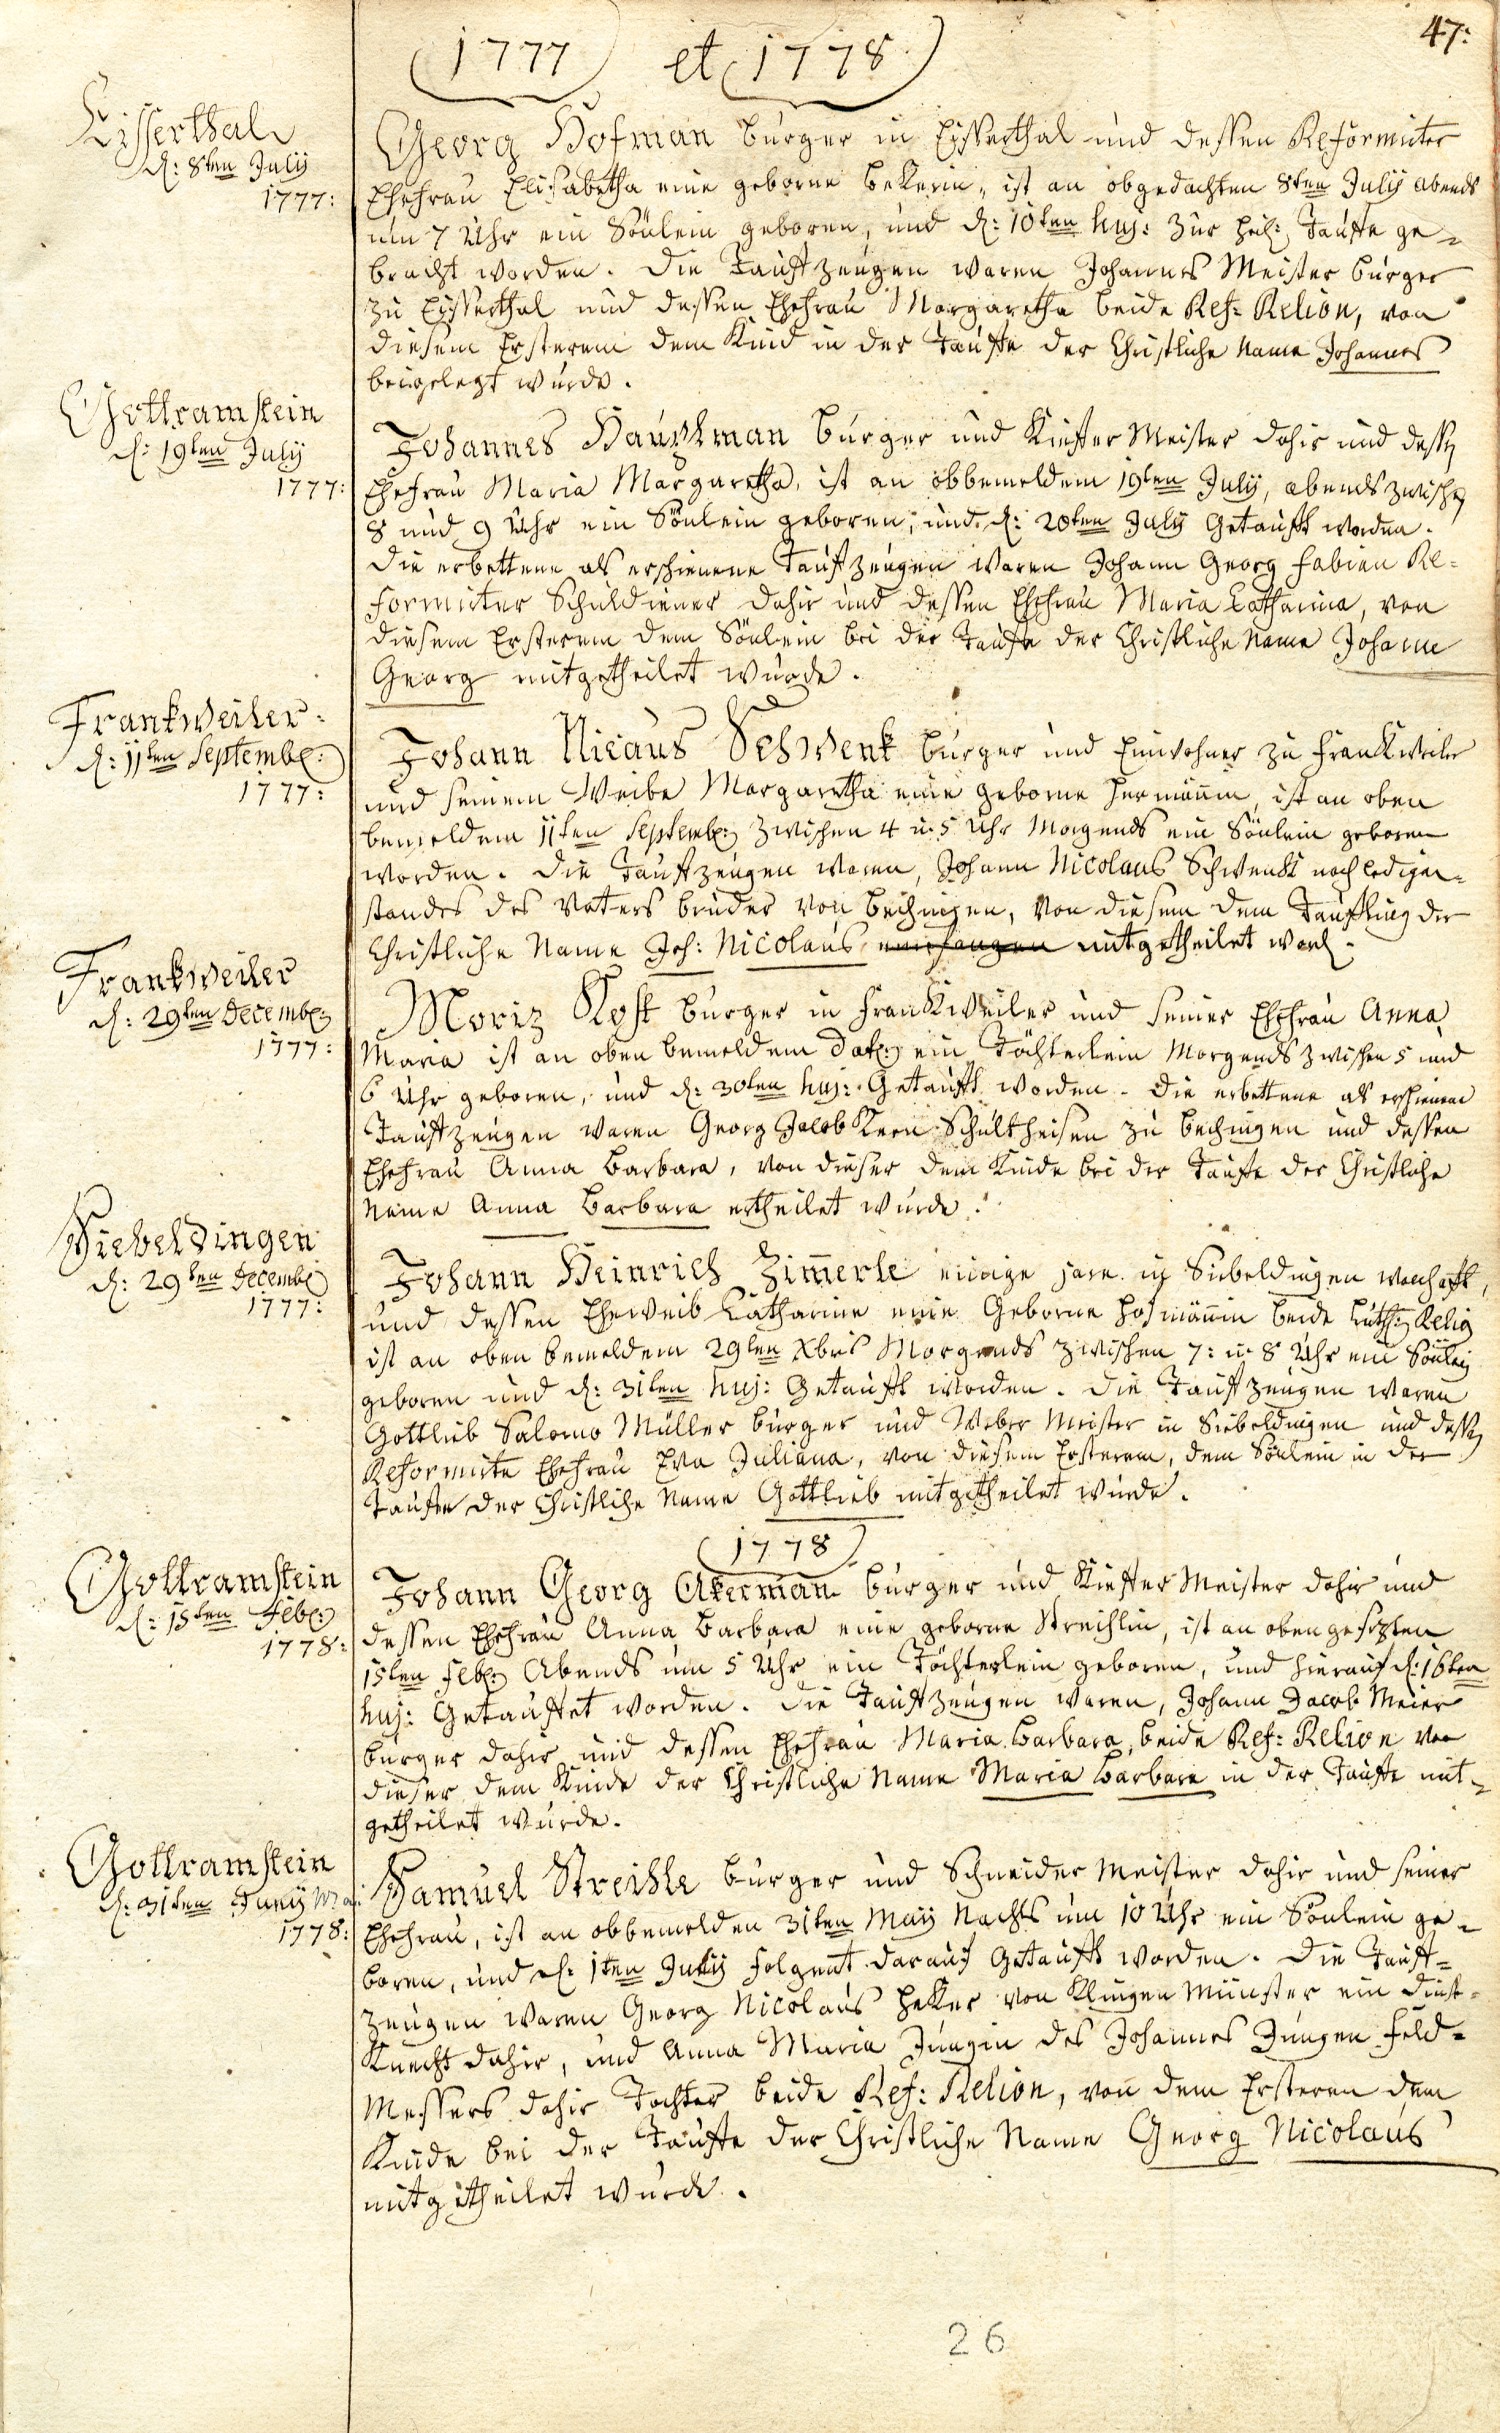 47:
1777 et 1778
Eisserthal
d: 8ten July
1777:
Georg Hofman burger in Eisserthal und dessen Reformirter
Ehefrau Elisabetha eine geborne Bekerin, ist an obgedachten 8ten July abends
um 7 Uhr ein Sönlein geboren, und d: 10ten huj: zur heil: Tauffe ge=
bracht worden. Die Taufzeugen waren Johannes Meister burger
zu Eisserthal und dessen Ehefrau Margaretha beide Ref: Relion, von
diesem Ersterem dem Kind in der Tauffe der Christliche Name Johannes
beigelegt wurde.
Gottramstein
d: 19ten July
1777:
Johannes Hauptman burger und Kieffer Meister dahir und dessen
Ehefrau Maria Margaretha, ist an obbemeldem 19ten July, abends zwischen
8 und 9 Uhr ein Sönlein geboren, und d: 20ten July Getaufft worden.
Die erbettene als erschienene Taufzeugen waren Johann Georg Fabian Re=
formirter Schuldiener dahir und dessen Ehefrau Maria Catharina, von
diesem Ersterem dem Sönlein bei der Tauffe der Christliche Name Johann
Georg mitgetheilet wurde.
Frankweiler:
d: 11ten Septemb:
1777:
Johann Niclaus Schwenk burger und Einwohner zu Frankweiler
und seinem Weibe Margaretha eine geborne Hermännin, ist an oben
bemeldem 11ten Septemb: zwischen 4 u. 5 Uhr Morgends ein Sönlein geboren
worden. Die Taufzeugen waren, Johann Nicolaus Schwenk noch ledigen=
standes des Vaters bruder von Bechingen, von diesem dem Täufling der
Christliche Name Joh: Nicolaus mitgetheilet word.
Frankweiler
d: 29ten Decemb:
1777:
Moriz Kost burger in Frankweiler und seiner Ehefrau Anna
Maria ist an oben bemeldem Dat: ein Töchterlein Morgends zwischen 5 und
6 Uhr geboren, und d: 30ten huj: Getaufft worden. Die erbettene als erschienene
Taufzeugen waren Georg Jacob Kern Schultheisen zu Bechingen und dessen
Ehefrau Anna Barbara, von dieser dem Kinde bei der Tauffe der Christliche
Name Anna Barbara ertheilet wurde.
Siebeldingen
d: 29ten Decemb:
1777:
Johann Heinrich Zimerle einige jare in Siebeldingen wonhafft,
und dessen Eheweib Catharine eine Geborne Hofmännin beide Luth: Relig
ist an oben bemeldem 29ten Xbris Morgends zwischen 7: u. 8 Uhr ein Sönlein
geboren und d: 31ten huj: Getaufft worden. Die Taufzeugen waren
Gottlieb Salomo Müller burger und Weber Meister in Siebeldingen und dessen
Reformirte Ehefrau Eva Juliana, von diesem Ersterem, dem Sönlein in der
Tauffe der Christliche Name Gottlieb mitgetheilet wurde.
1778
Gottramstein
d: 15ten Feb:
1778:
Johann Georg Akerman burger und Kieffer Meister dahir und
dessen Ehefrau Anna Barbara eine geborne Streichlin, ist an obengesezten
15ten Feb: Abends um 5 Uhr ein Töchterlein geboren, und hierauf d: 16ten
huj: Getauffet worden. Die Taufzeugen waren, Johann Jacob Meier
burger dahir und dessen Ehefrau Maria Barbara, beide Ref: Relion von
dieser dem Kinde der Christliche Name Maria Barbara in der Tauffe mit=
getheilet wurde.
Gottramstein
d: 31ten Juny Mai
1778:
Samuel Streihle burger und Schneider Meister dahir und seiner
Ehefrau, ist an obbemelden 31ten May Nachts um 10 Uhr ein Sönlein ge=
boren, und d: 1ten July folgent darauf Getaufft worden. Die Tauf=
zeugen waren Georg Nicolaus Heker von Klingen Münster ein Dinst=
Knecht dahir, und Anna Maria Jungin des Johannes Jungen Feld=
Messers dahir Tochter beide Ref: Relion, von dem Ersteren dem
Kinde bei der Tauffe der Christliche Name Georg Nicolaus
mitgetheilet wurde.
26